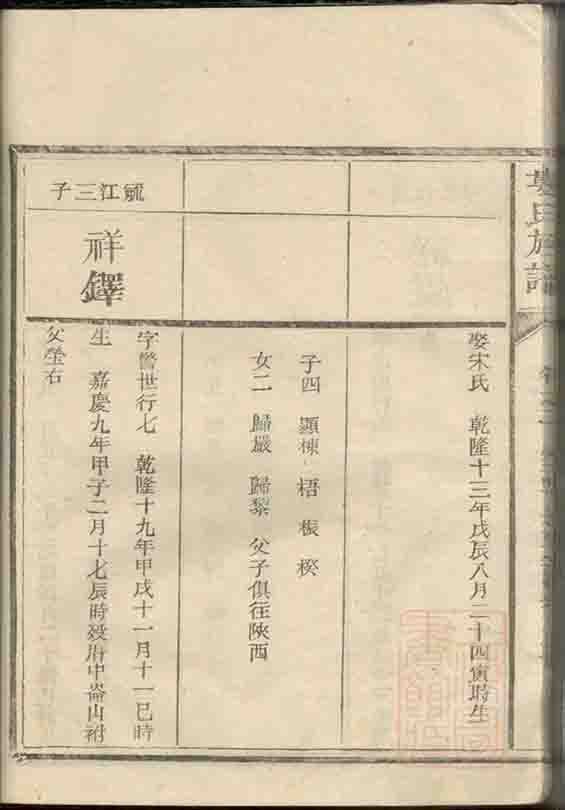 氏族譜
娶宋氏 乾隆十三年戊辰八月二十四寅時生
子四 顯棟 梧 桭 楔
女二 歸嚴 歸黎 父子俱往陝西
毓江三子
祥鐸
字警世行七 乾隆十九年甲戌十一月十一巳時
生 嘉慶九年甲子二月十七辰時歿居中崙山祔
父塋右